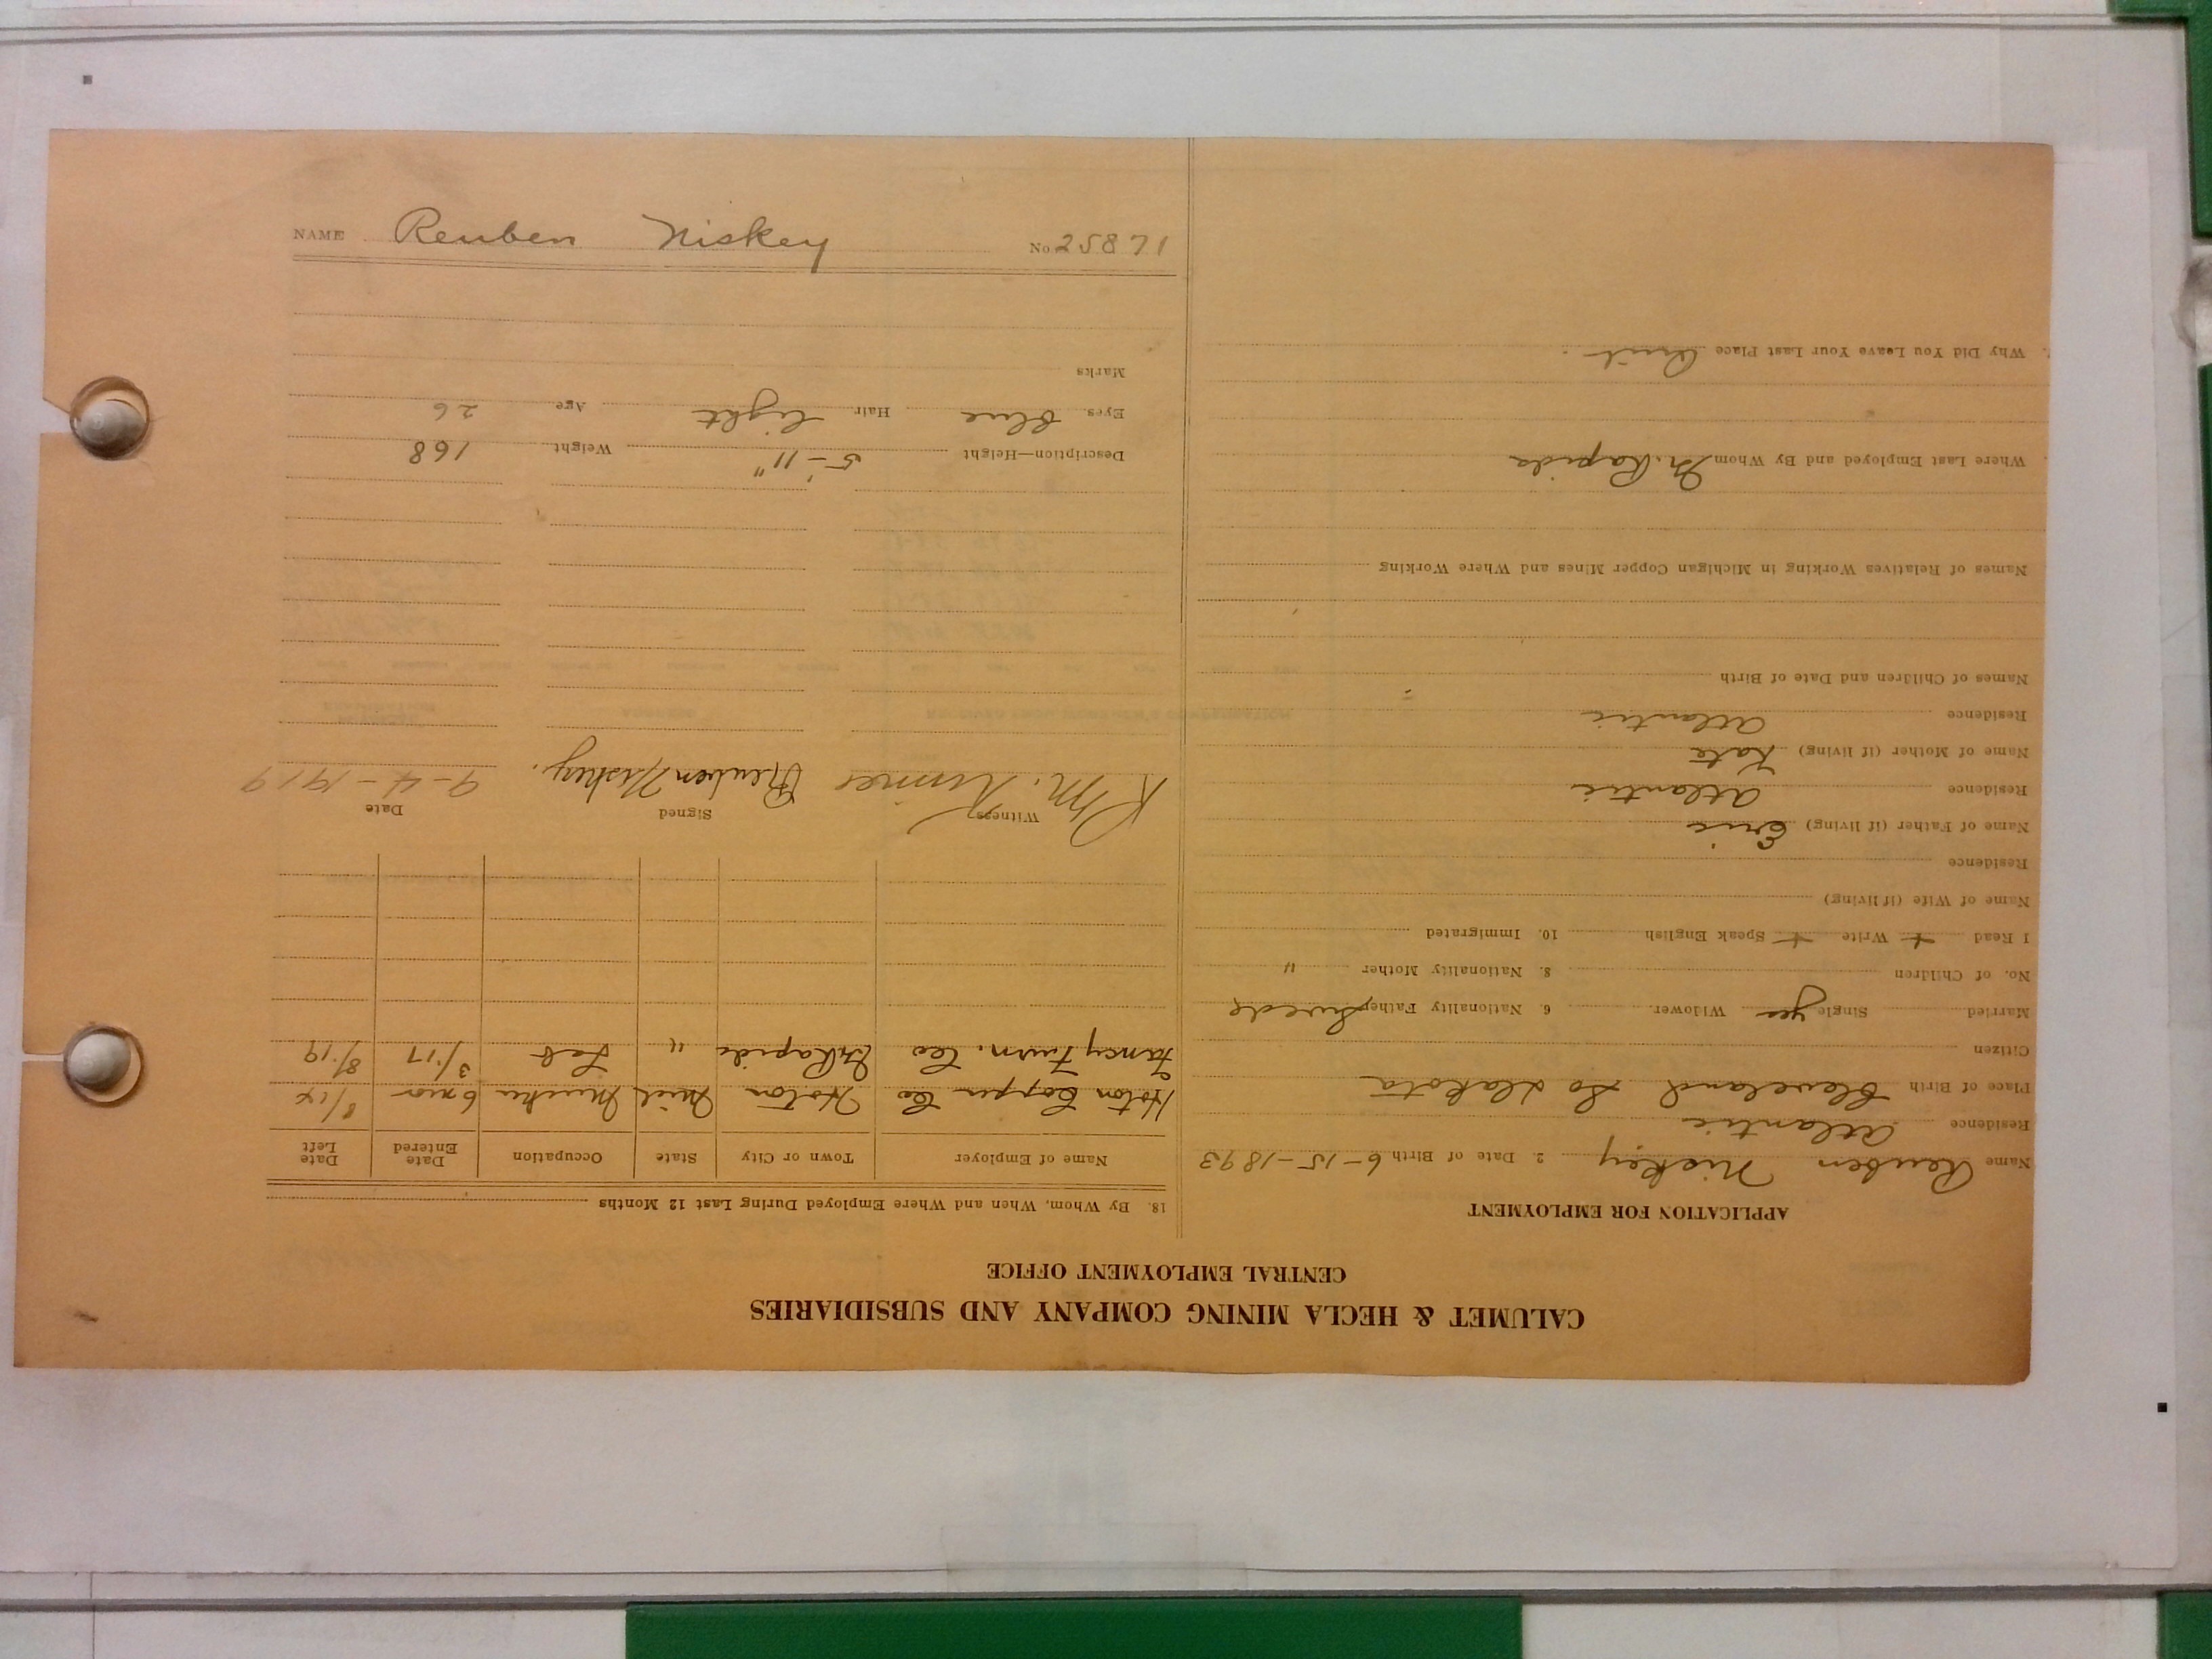 CALUMET & HECLA MINING COMPANY AND SUBSIDIARIES
CENTRAL EMPLOYMENT OFFICE
APPLICATION FOR EMPLOYMENT
Name Reuben Niskey 2. Date of Birth 6-15-1893
Residence Atlantic
Place of Birth Cleveland So Dakota
Citizen
Married Single yes Widower 6. Nationality Father Swede
No. of Children 8. Nationality Mother "
I Read + Write + Speak English 10. Immigrated
Name of Wife (if living)
Residence
Name of Father (if living) Eric
Residence Atlantic
Name of Mother (if living) Kate
Residence Atlantic
Names of Children and Date of Birth
Names of Relatives Working in Michigan Copper Mines and Where Working
Where Last Employed and By Whom Gr. Rapids
Why Did You Leave Your Last Place Quit.
18. By Whom, When and Where Employed During Last 12 Months
Name of Employer Town or City State Occupation Date Entered Date Left
Hoton Copper Co Hoton Mich 6 mos
Fancy Furn. Co Gr Rapids " Lab 3/17 8/19
Witness Signed Date
R M. Reuben Niskey. 9-4-1919
Description—Height 5-11" Weight 168
Eyes. Blue Hair light Age 26
Marks
NAME Reuben Niskey No. 25871